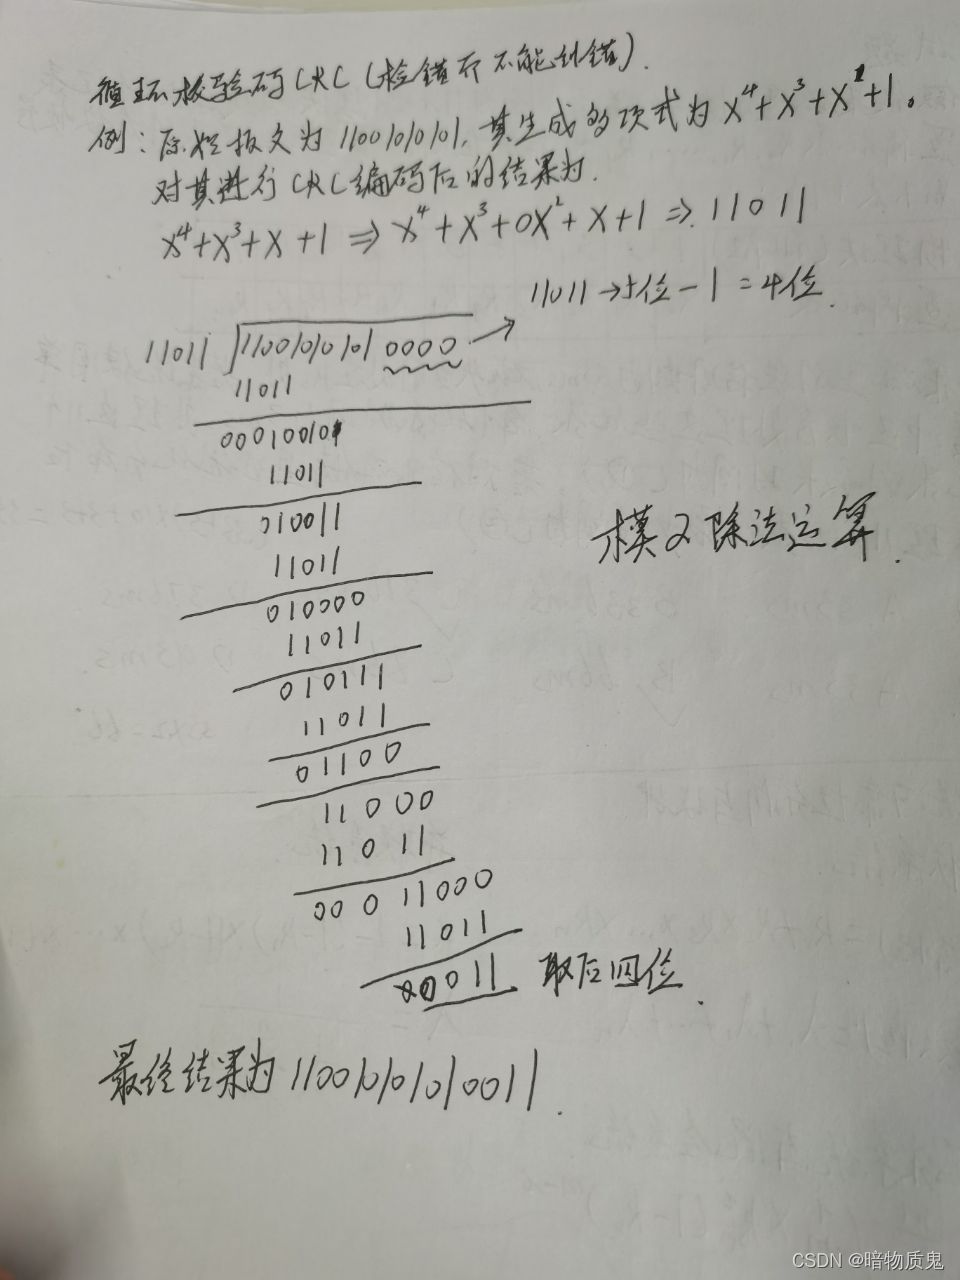 循环校验码CRC(检错而不能纠错).
例:原始报文为11001010101,其生成多项式为X⁴+X³+X+1。
对其进行CRC编码后的结果为.
X⁴+X³+X+1⇒X⁴+X³+0X²+X+1⇒11011
11011→5位-1=4位
11011 11001010101 0000
11011
11011
010011
11011
010000
11011
010111
11011
01100
11000
11011
00011000
11011
0011 取后四位.
模2除法运算.
最终结果为110010101010011.
CSDN @暗物质鬼